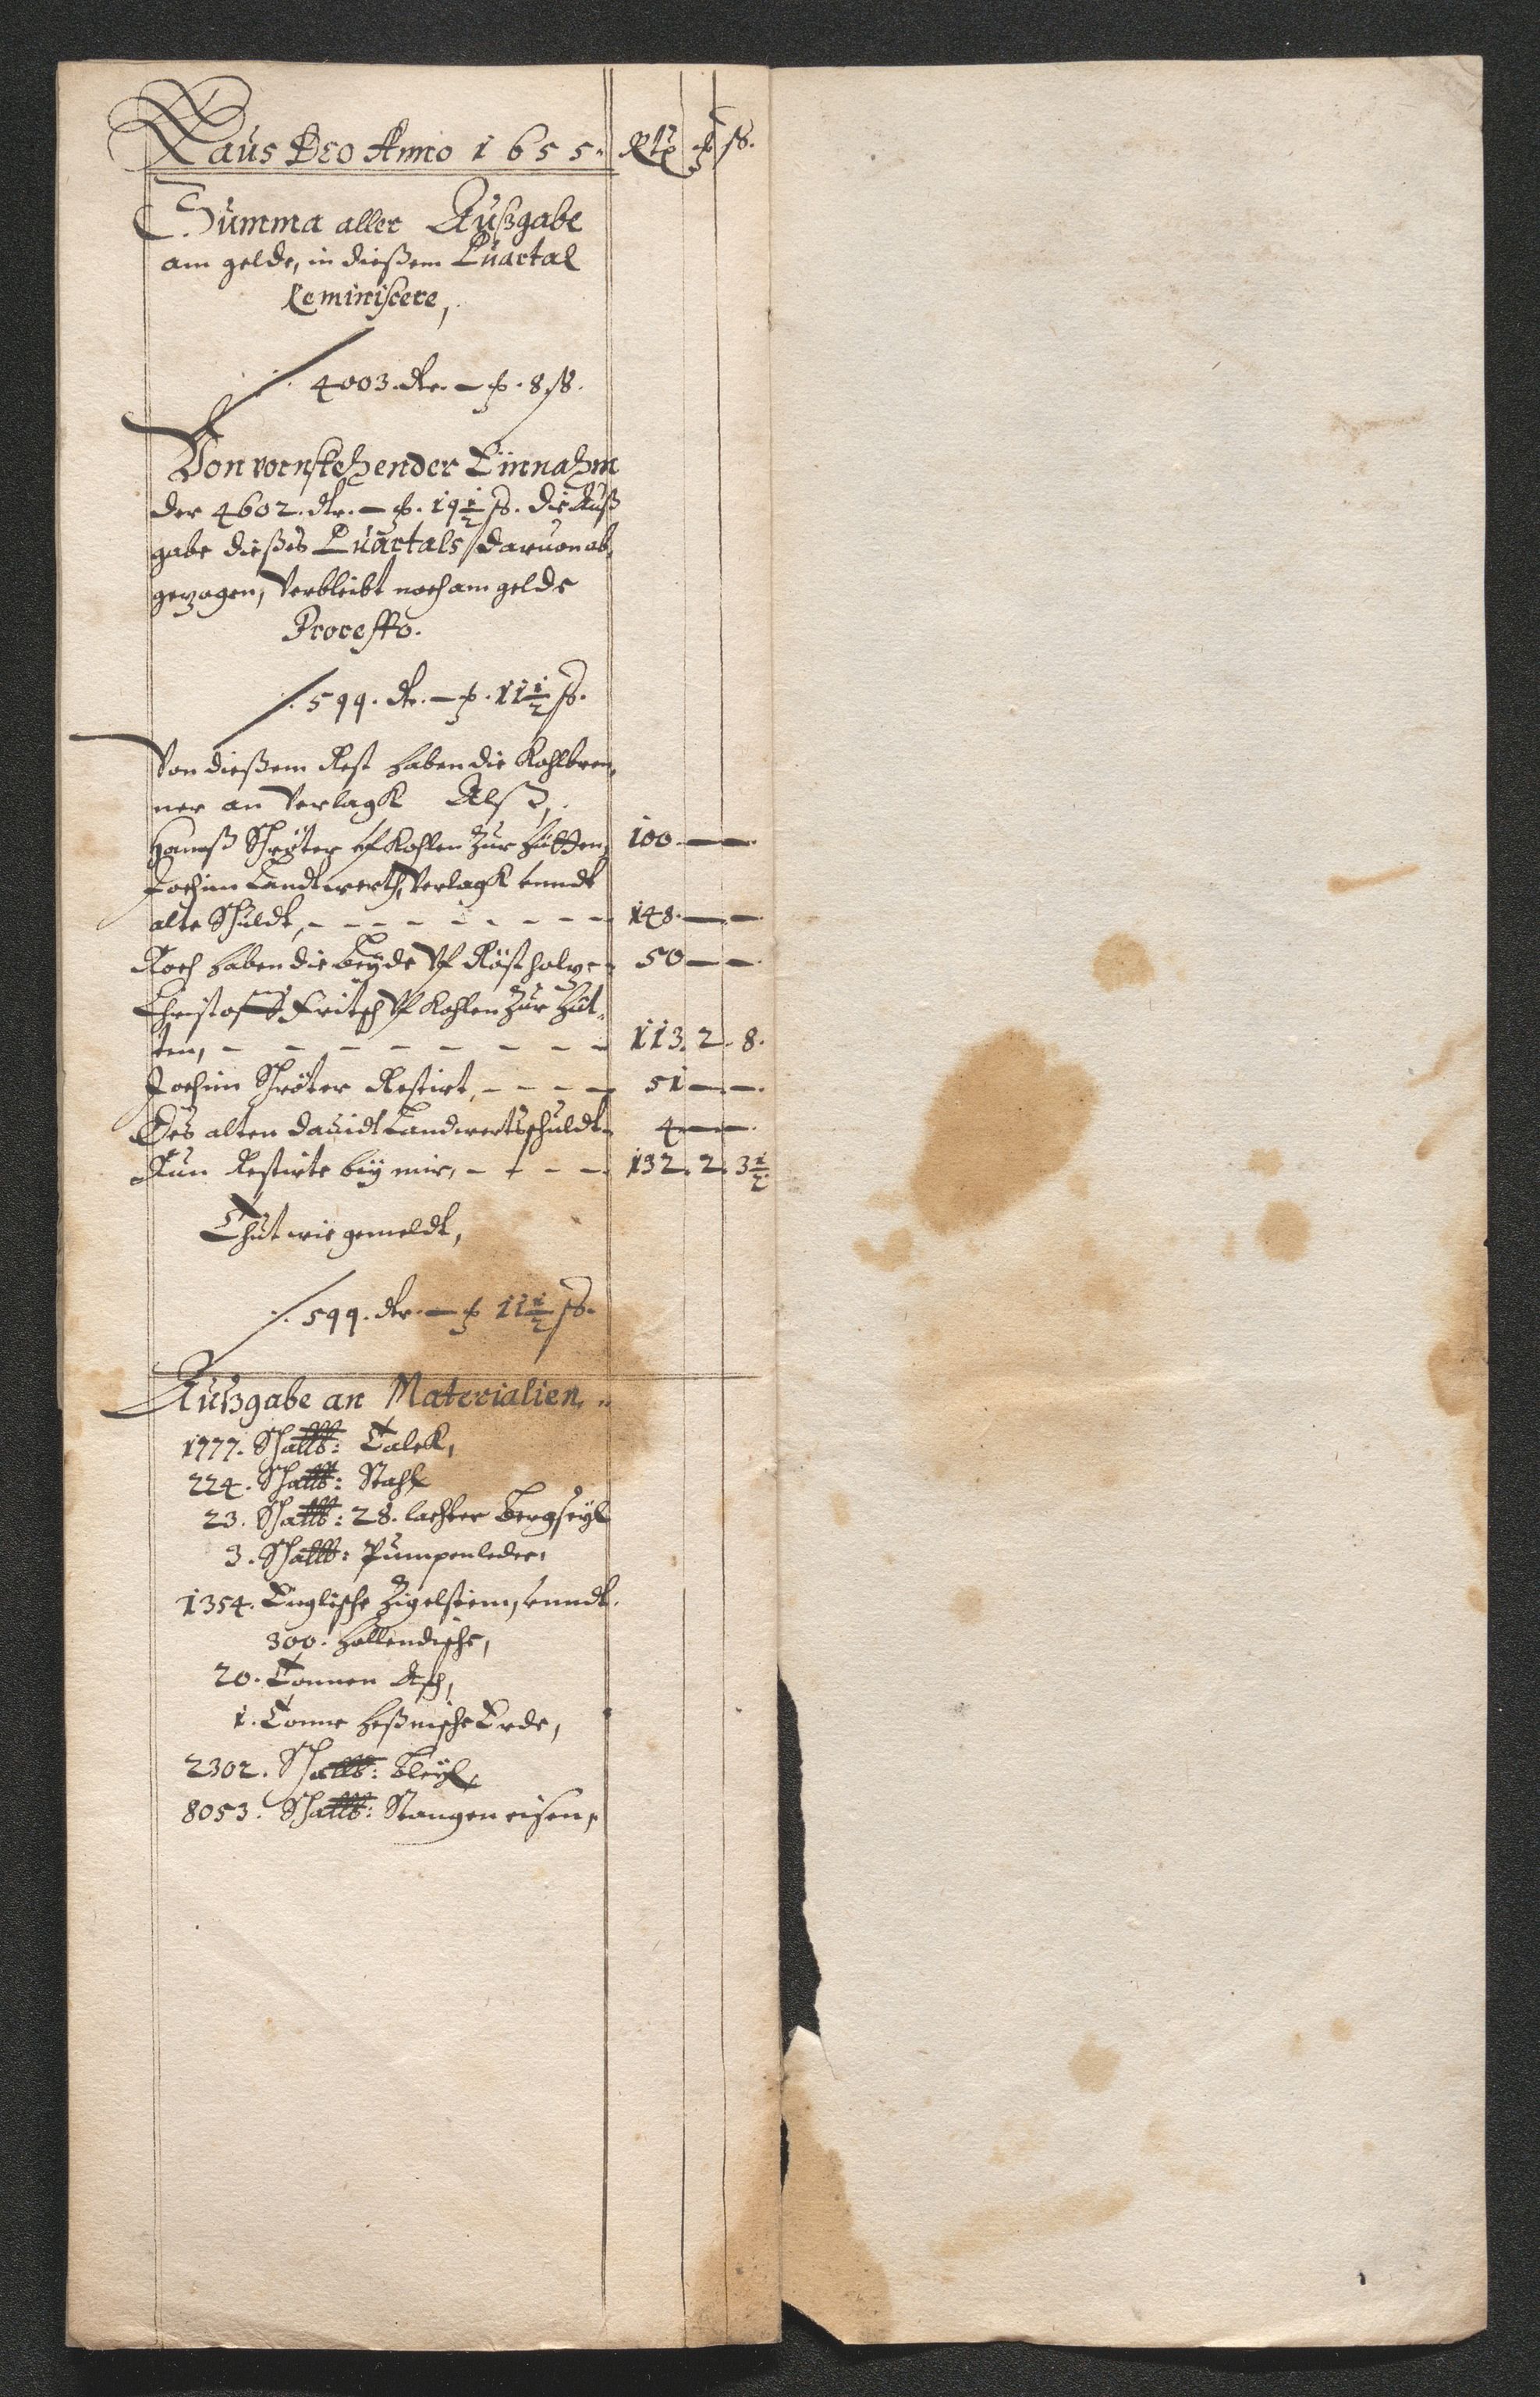 Laus Deo Anno 1655. Rtl ß
Summa aller Außgabe
am gelde, in dießem Quartal
Reminiscere,
4003. Rtr. — 8 ß.
Von vornstehender Einnahm
der 4602. Rtr. — 19 1/2 ß. die Auß
gabe dießes Quartals daruon ab,
gezogen, Verbleibt noch am gelde
Proresto.
599. Rtr. — 11 1/2 ß.
Von dießem Rest haben die Kohlbren,
ner an Verlagk Alß,
Hannß Schröter vf Kohlen Zur Hütten, 100. — —
Jochim Landtwerth, Verlagk unndt
alte Schuldt, - - - - - - - - 148. — —
Noch haben die beÿde Vf Röstholtz - 50 — —
Christoff Fritsch Vf Kohlen Zur Hüt,
ten, - - - - - - - - 113. 2. 8.
Jochim Schröter Restirt, - - - - 51 — —
Des alten Dauidt Landwerts schuldt - 4 — —
Nun Restirts beÿ mir, - - - - 132. 2. 3 1/2
Thut wie gemeldt,
599. Rtr. — 11 1/2 ß.
Außgabe an Materialien,
1777. Schallb: Talck,
224. Schallb: Stahl
23. Schallb: 28. lachter Bergseÿl
3. Schallb: Pumpenleder,
1354. Englische Zigelstein, unndt
300. hollendische,
20. Tonnen Asch,
1. Tonne heßnische Erde,
2302. Schallb: Bleÿ,
8053. Schallb: Stangen eisen,